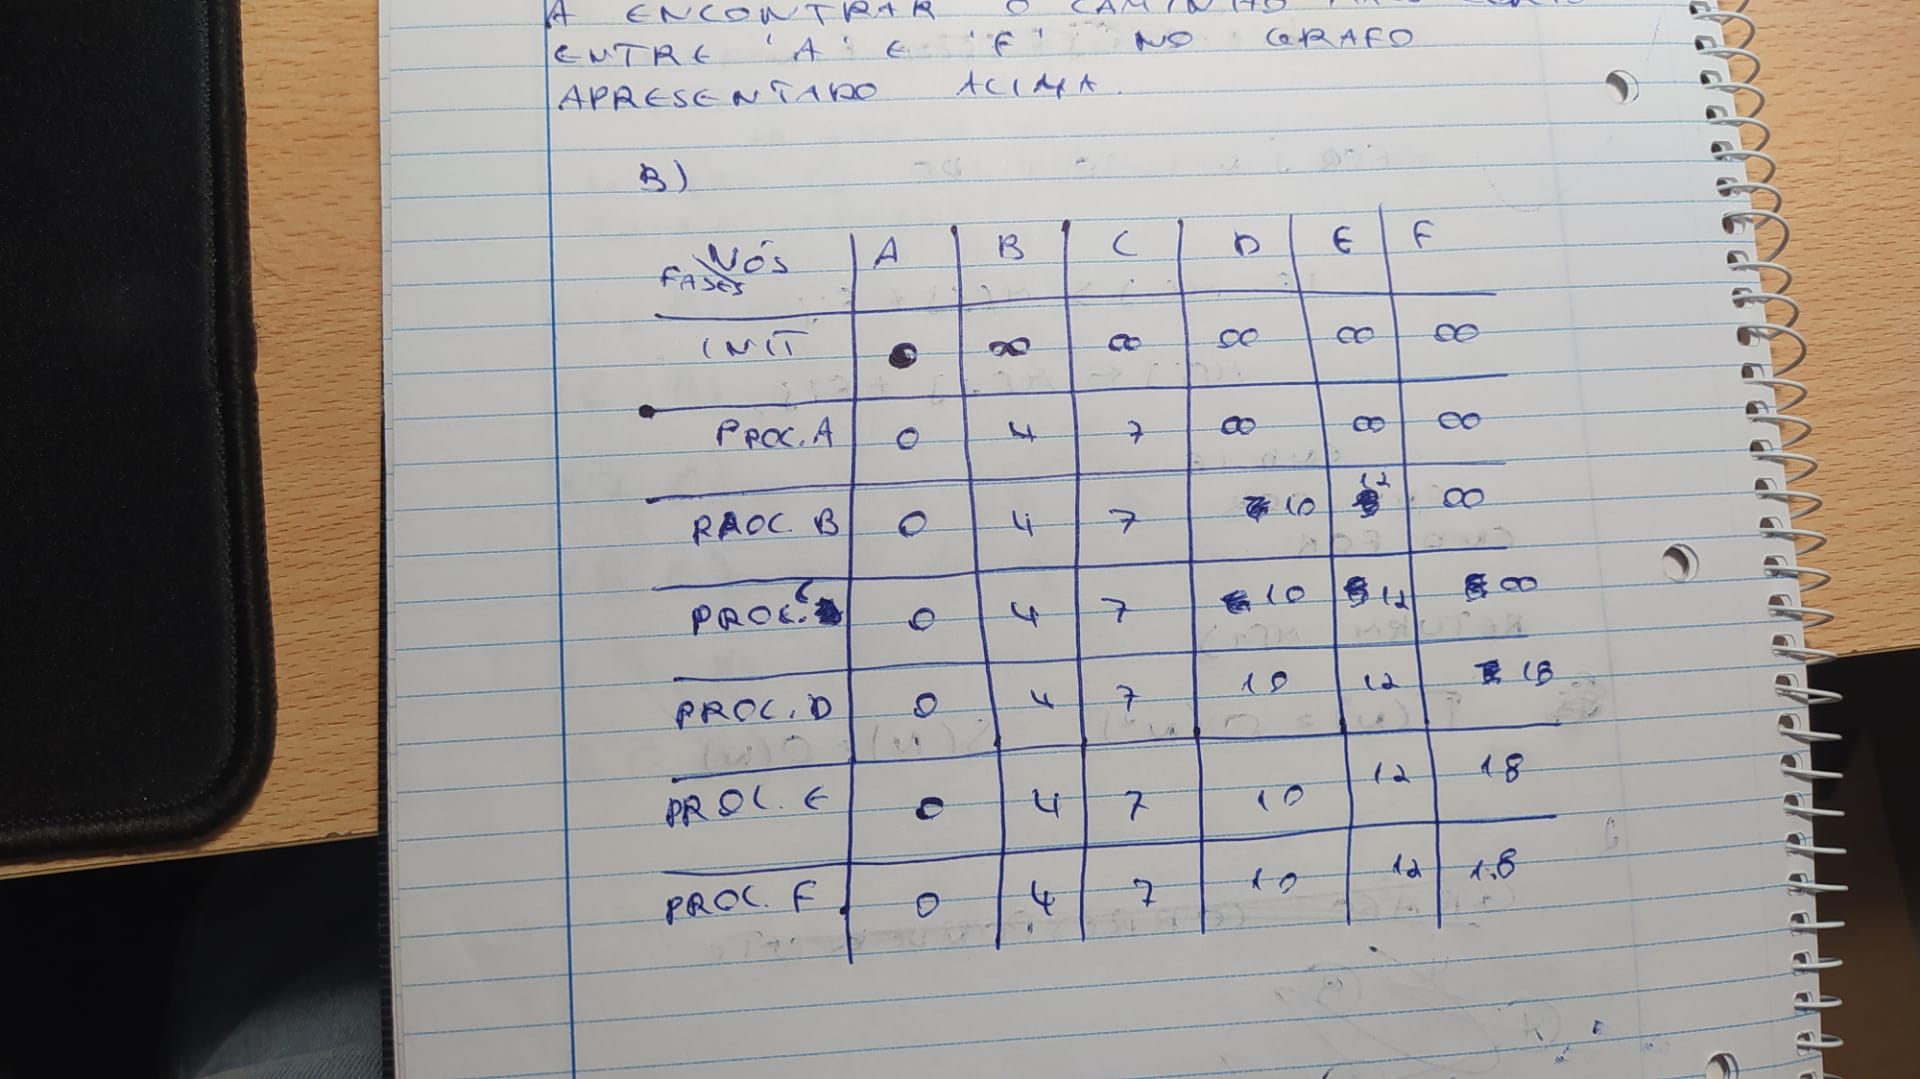 A ENCONTRAR O CAMINHO MAIS CURTO
ENTRE 'A' E 'F' NO GRAFO
APRESENTADO ACIMA.
B)
NÓS A B C D E F
FASES
INIT 0 ∞ ∞ ∞ ∞ ∞
PROC. A 0 4 7 ∞ ∞ ∞
PROC. B 0 4 7 10 12 ∞
PROC. C 0 4 7 10 12 ∞
PROC. D 0 4 7 10 12 18
PROC. E 0 4 7 10 12 18
PROC. F 0 4 7 10 12 18